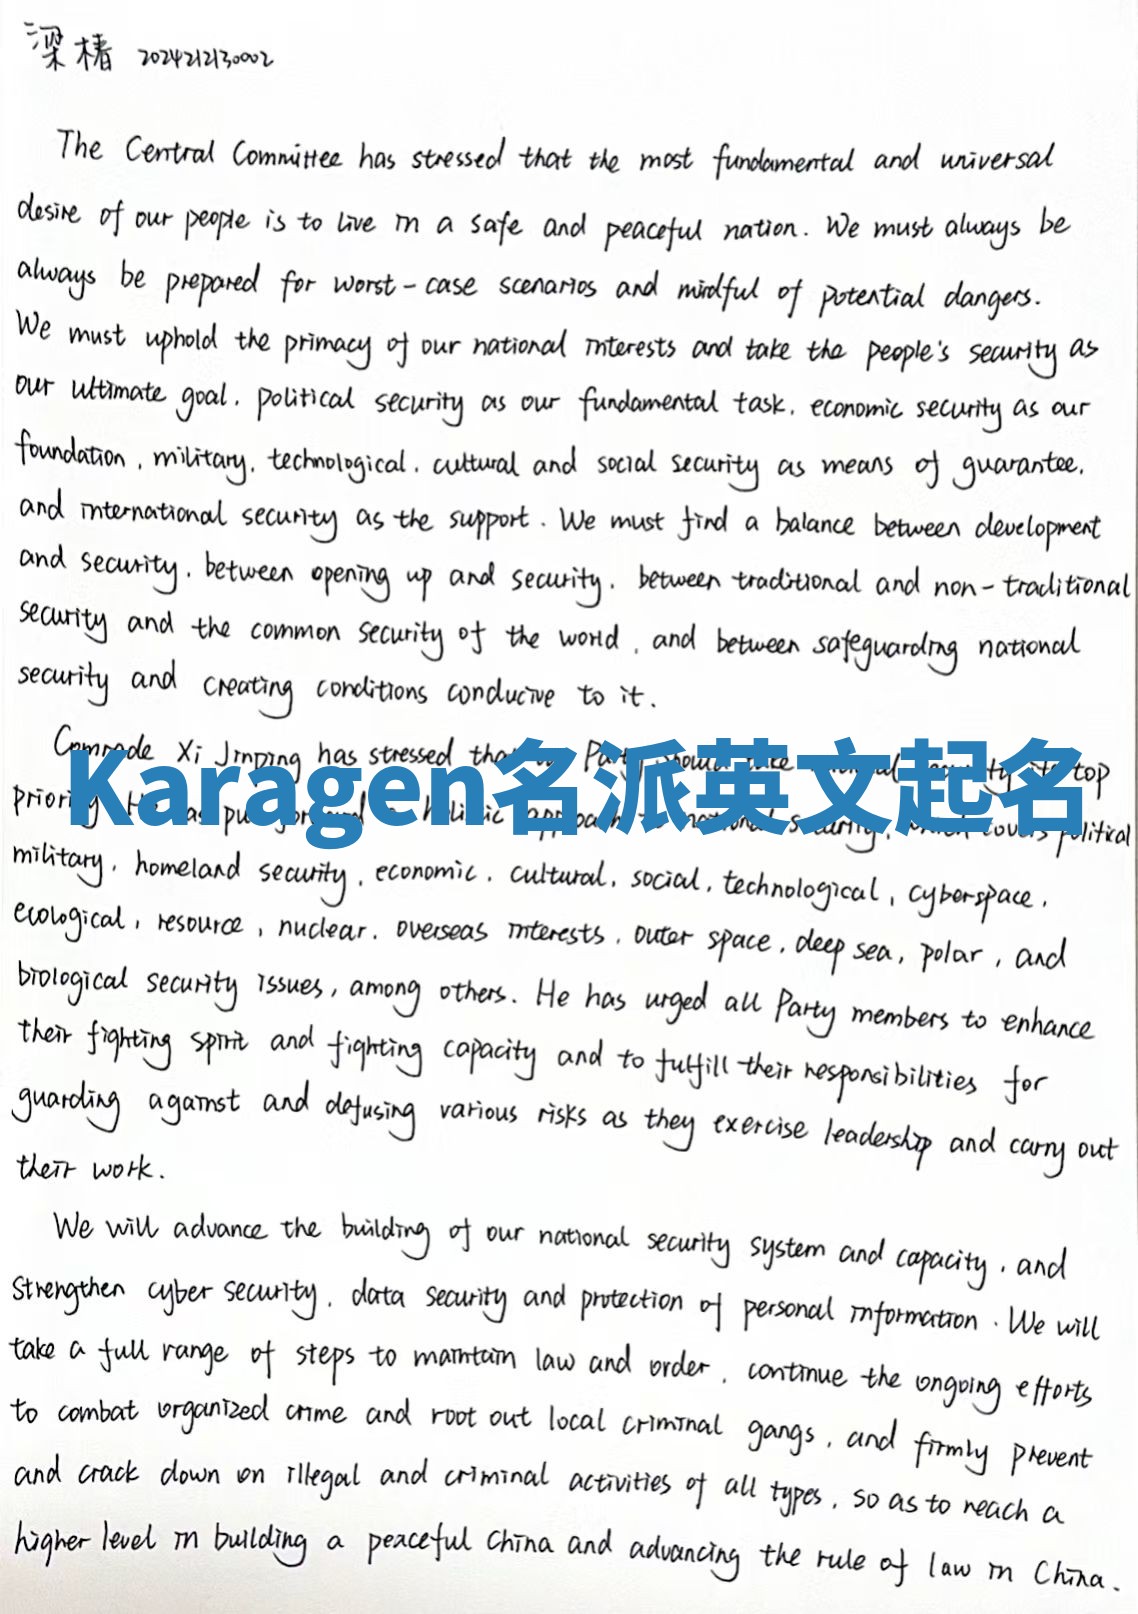 梁椿 2024212130002
The Central Committee has stressed that the most fundamental and universal
desire of our people is to live in a safe and peaceful nation. We must always be
always be prepared for worst-case scenarios and mindful of potential dangers.
We must uphold the primacy of our national interests and take the people's security as
our ultimate goal, political security as our fundamental task, economic security as our
foundation, military, technological, cultural and social security as means of guarantee,
and international security as the support. We must find a balance between development
and security, between opening up and security, between traditional and non-traditional
security and the common security of the world, and between safeguarding national
security and creating conditions conducive to it.
Comrade Xi Jinping has stressed Party should top
Karagen名派英文起名
priority national security, which covers political
military, homeland security, economic, cultural, social, technological, cyberspace,
ecological, resource, nuclear, overseas interests, outer space, deep sea, polar, and
biological security issues, among others. He has urged all Party members to enhance
their fighting spirit and fighting capacity and to fulfill their responsibilities for
guarding against and defusing various risks as they exercise leadership and carry out
their work.
We will advance the building of our national security system and capacity, and
strengthen cyber security, data security and protection of personal information. We will
take a full range of steps to maintain law and order, continue the ongoing efforts
to combat organized crime and root out local criminal gangs, and firmly prevent
and crack down on illegal and criminal activities of all types, so as to reach a
higher level in building a peaceful China and advancing the rule of law in China.